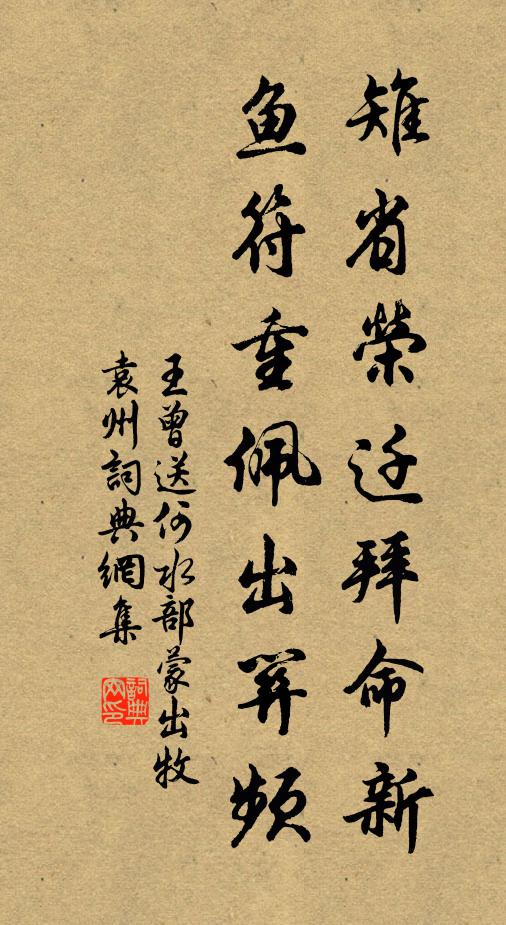 雉省榮迁拜命新
鱼符重佩出関频
王曾送何水部蒙出牧
袁州詞典網集
詞典网印